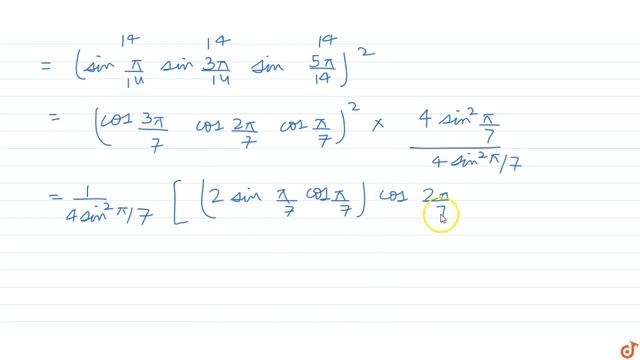 14 14 14
= (sin π/14 sin 3π/14 sin 5π/14)²
= (cos 3π/7 cos 2π/7 cos π/7)² × 4 sin² π/7 / 4 sin² π/7
= 1/4sin² π/7 [ (2 sin π/7 cos π/7) cos 2π/7